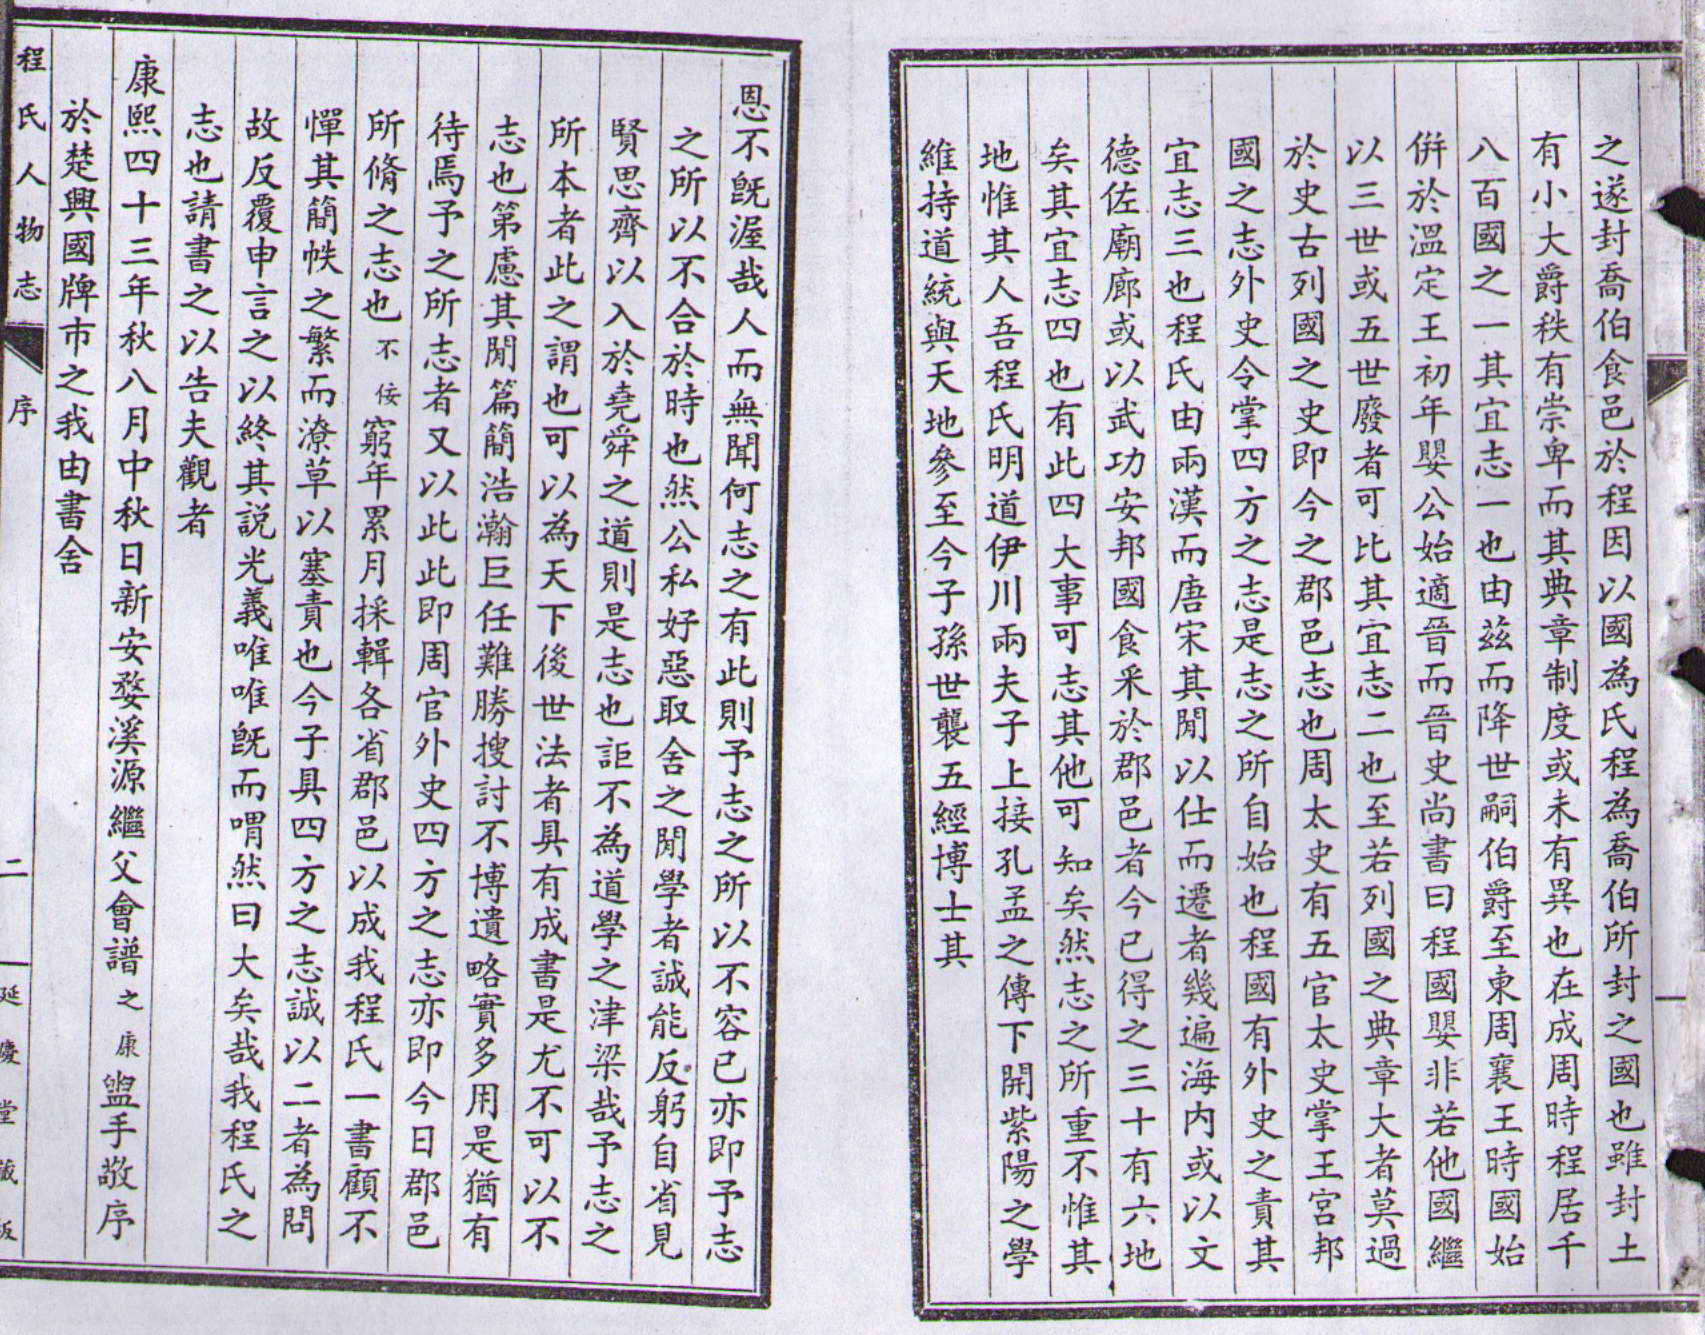 之遂封喬伯食邑於程因以國為氏程為喬伯所封之國也雖封土
有小大爵秩有崇卑而其典章制度或未有異也在成周時程居千
八百國之一其宜志一也由茲而降世嗣伯爵至東周襄王時國始
併於溫定王初年嬰公始適晉而晉史尚書曰程國嬰非若他國繼
以三世或五世廢者可比其宜志二也至若列國之典章大者莫過
於史古列國之史即今之郡邑志也周太史有五官太史掌王宮邦
國之志外史令掌四方之志是志之所自始也程國有外史之責其
宜志三也程氏由兩漢而唐宋其閒以仕而遷者幾遍海内或以文
德佐廟廊或以武功安邦國食采於郡邑者今已得之三十有六地
矣其宜志四也有此四大事可志其他可知矣然志之所重不惟其
地惟其人吾程氏明道伊川兩夫子上接孔孟之傳下開紫陽之學
維持道統與天地參至今子孫世襲五經博士其
恩不旣渥哉人而無聞何志之有此則予志之所以不容已亦即予志
之所以不合於時也然公私好惡取舍之閒學者誠能反躬自省見
賢思齊以入於堯舜之道則是志也詎不為道學之津梁哉予志之
所本者此之謂也可以為天下後世法者具有成書是尤不可以不
志也第慮其閒篇簡浩瀚巨任難勝搜討不博遺略實多用是猶有
待焉予之所志者又以此此即周官外史四方之志亦即今日郡邑
所脩之志也不佞窮年累月採輯各省郡邑以成我程氏一書顧不
憚其簡帙之繁而潦草以塞責也今子具四方之志誠以二者為問
故反覆申言之以終其說光義唯唯旣而喟然曰大矣哉我程氏之
志也請書之以告夫觀者
康熙四十三年秋八月中秋日新安婺溪源繼父會譜之康盥手敬序
於楚興國牌市之我由書舍
程氏人物志
序
二
延慶堂藏板